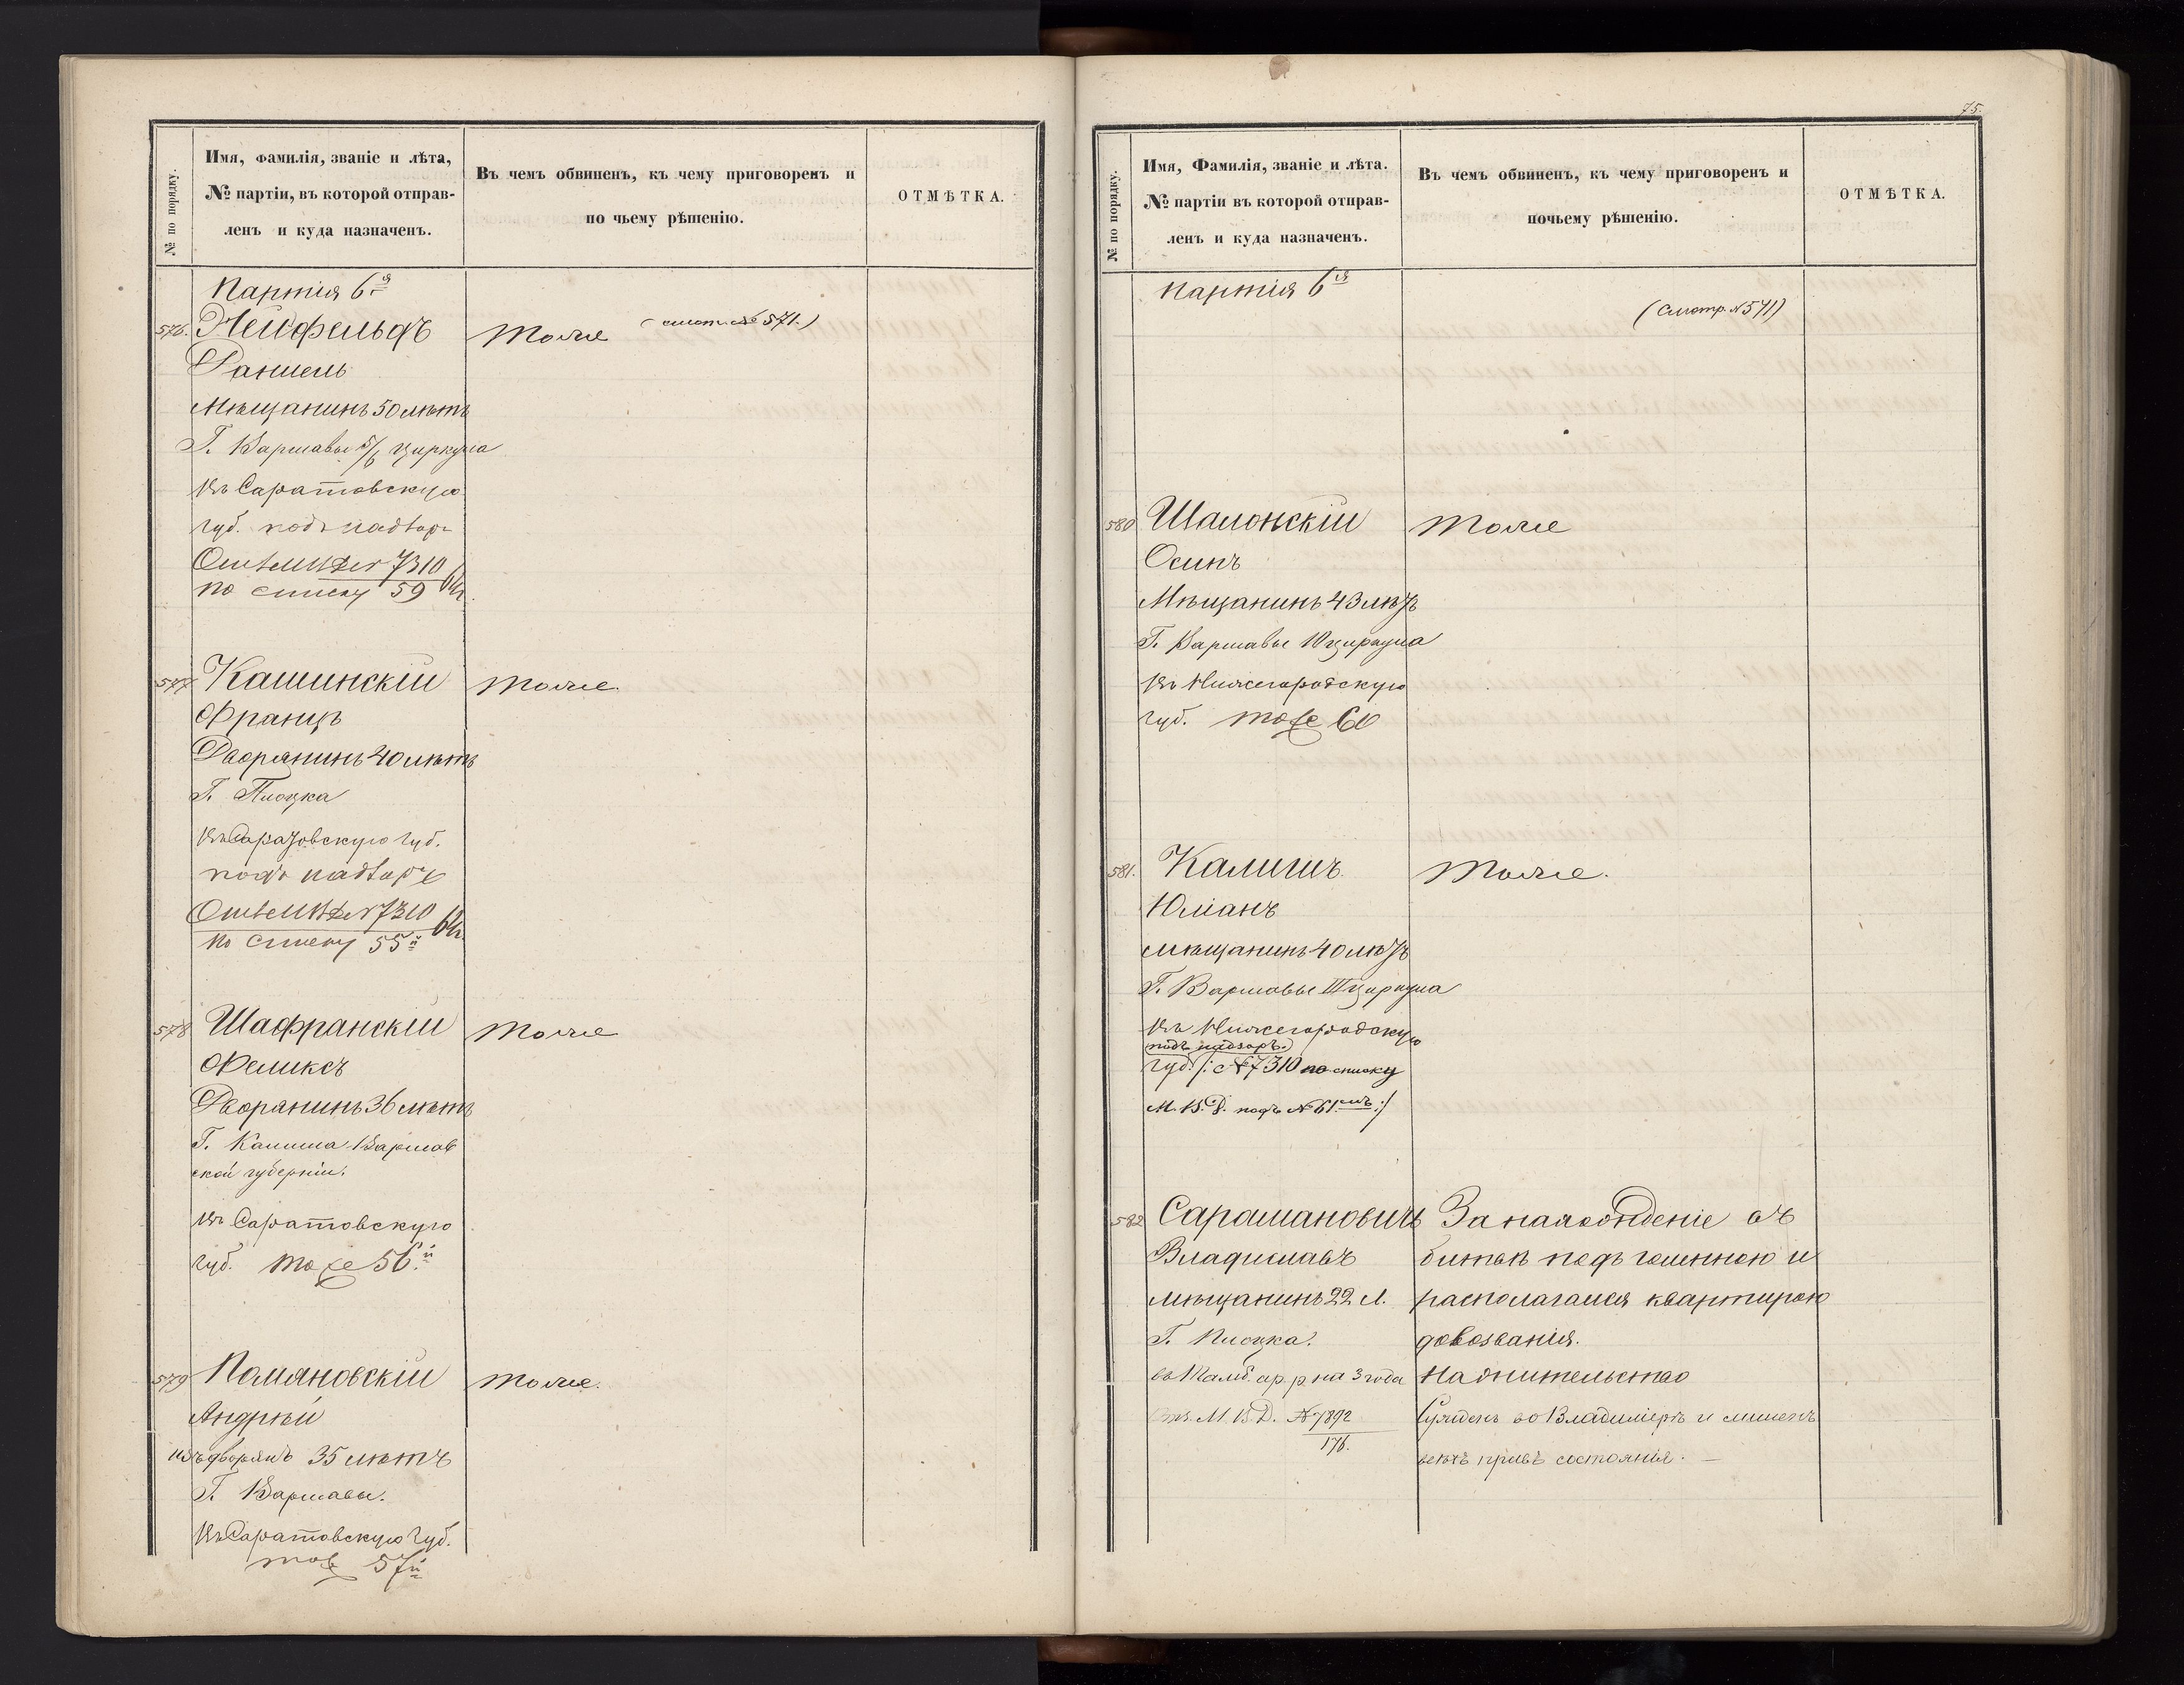 № по порядку.
Имя, фамилія, званіе и лѣта,
№ партіи, въ которой отправ-
ленъ и куда назначенъ.
Въ чемъ обвиненъ, къ чему приговоренъ и
по чьему рѣшенію.
ОТМѢТКА.
Партія 6я
576. Нейфельдъ
Тоже (смот. № 571.)
Даніель
Мѣщанинъ 50 лѣтъ
Г. Варшавы 5/6 циркула
Въ Саратовскую
губ. подъ надзоръ
7310
по списку 59
577 Кашинскій
Тоже.
Францъ
Дворянинъ 40 лѣтъ
Г. Плоцка
Въ Саратовскую губ.
подъ надзоръ
7310
по списку 55й
578 Шафранскій
Тоже
Феликсъ
Дворянинъ 36 лѣтъ
Г. Калиша Варшав
ской губерніи.
Въ Саратовскую
губ. тоже 56й
579 Помяновскій
Тоже.
Андрѣй
изъ дворянъ 35 лѣтъ
Г. Варшавы.
Въ Саратовскую губ.
тоже 57й
75.
№ по порядку.
Имя, Фамилія, званіе и лѣта.
№ партіи въ которой отправ-
ленъ и куда назначенъ.
Въ чемъ обвиненъ, къ чему приговоренъ и
почьему рѣшенію.
ОТМѢТКА.
Партія 6я
(смотр. № 571)
580 Шалонскій
Тоже
Осипъ
Мѣщанинъ 43 лѣтъ
Г. Варшавы 10 циркула
Въ Нижегородскую
губ. тоже 60
581. Калишъ
Тоже.
Юліанъ
Мѣщанинъ 40 лѣтъ
Г. Варшавы III циркула
Въ Нижегородскую
подъ надзоръ.
губ. /: № 7310 по списку
М. В. Д. подъ № 61мъ :/
582 Сарамановичъ
За нахожденіе въ
Владиславъ
битвѣ подъ и
мѣщанинъ 22 л.
располагался квартирою
Г. Плоцка.
довозванія.
въ Тамб. ар. р. на 3 года
На жительство
М. В. Д. № 7892
во Владиміръ и лишенъ
176.
всѣхъ правъ состоянія. —